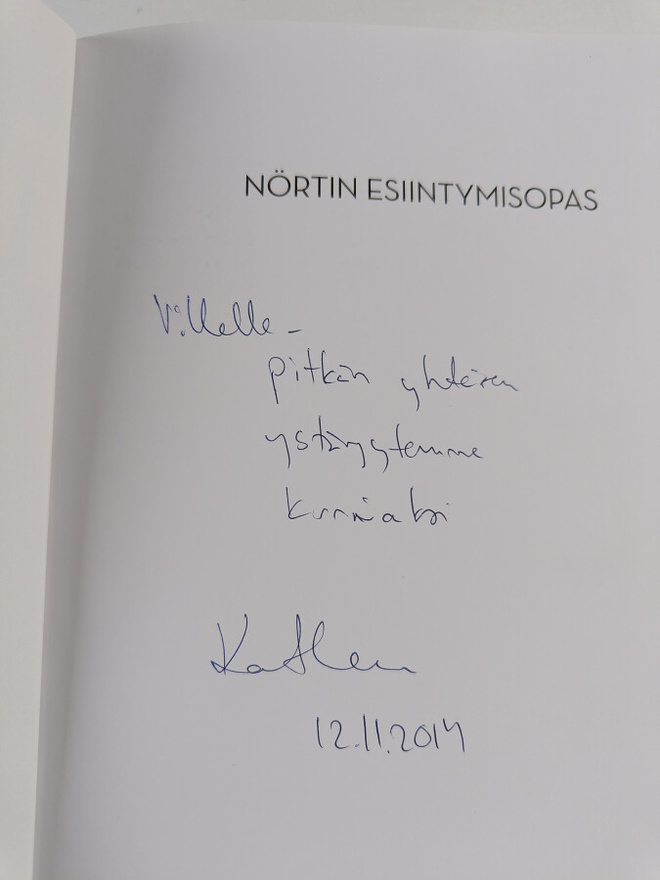 NÖRTIN ESIINTYMISOPAS
Villelle –
pitkän yhteisen
ystävyytemme
kunniaksi
12.11.2014